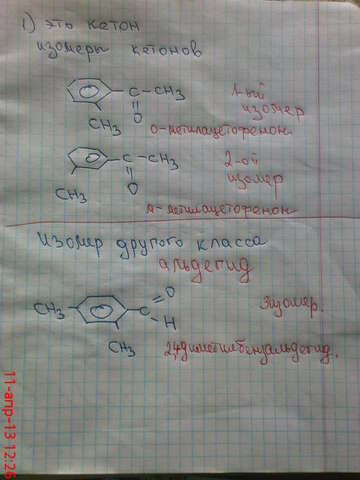 1) это кетон
изомеры кетонов
C - CH3
O
CH3
1-ый
изомер
о-метилацетофенон
C - CH3
O
CH3
2-ой
изомер
м-метилацетофенон
Изомер другого класса
альдегид
CH3
C
O
H
CH3
3изомер.
2,4диметилбензальдегид.
11-апр-13 12:26